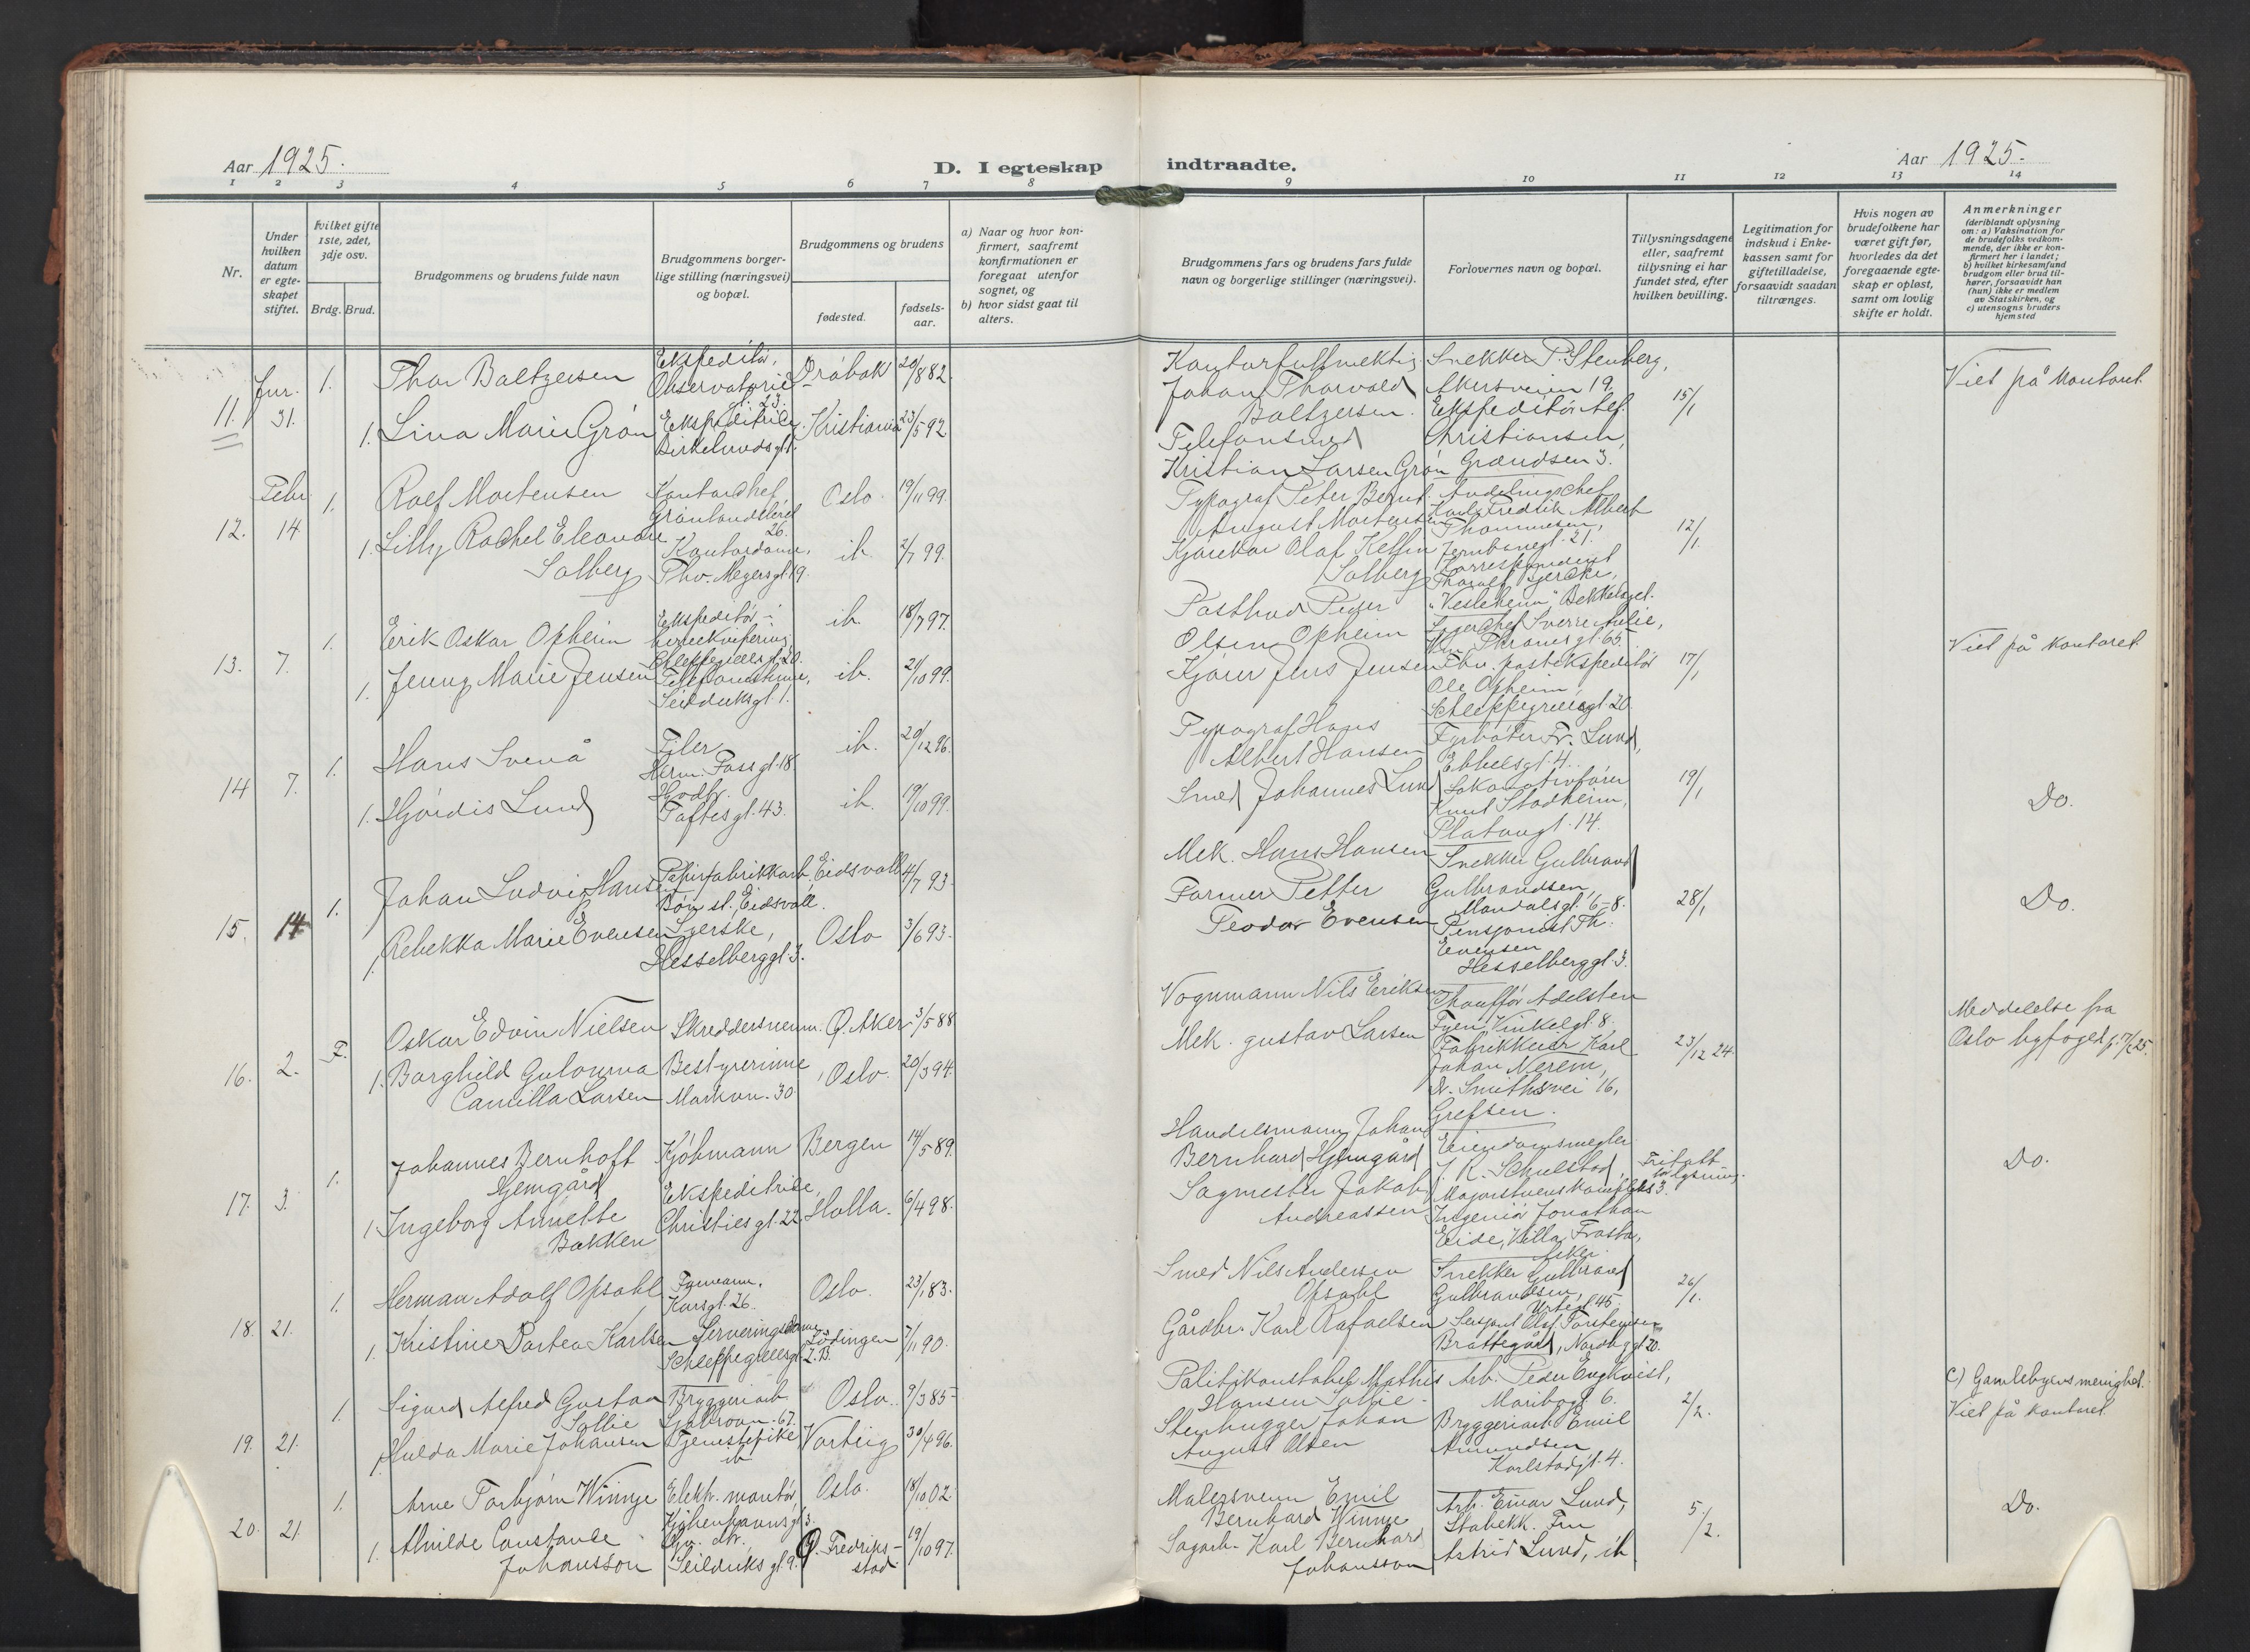 Aar 1925.
D. I egteskap indtraadte.
Aar 1925.
1 2 3 4 5 6 7 8 9 10 11 12 13 14
Nr.
Under hvilken datum er egteskapet stiftet.
Hvilket gifte 1ste, 2det, 3dje osv.
Brdg. Brud.
Brudgommens og brudens fulde navn
Brudgommens borgerlige stilling (næringsvei) og bopæl.
Brudgommens og brudens
fødested.
fødselsaar.
a) Naar og hvor konfirmert, saafremt konfirmationen er foregaat utenfor sognet, og
b) hvor sidst gaat til alters.
Brudgommens fars og brudens fars fulde navn og borgerlige stillinger (næringsvei).
Forlovernes navn og bopæl.
Tillysningsdagene eller, saafremt tillysning ei har fundet sted, efter hvilken bevilling.
Legitimation for indskud i Enkekassen samt for giftetilladelse, forsaavidt saadan tiltrænges.
Hvis nogen av brudefolkene har været gift før, hvorledes da det foregaaende egteskap er opløst, samt om lovlig skifte er holdt.
Anmerkninger (deriblandt oplysning om: a) Vaksination for de brudefolks vedkommende, der ikke er konfirmert her i landet; b) hvilket kirkesamfund brudgom eller brud tilhører, forsaavidt han (hun) ikke er medlem av Statskirken, og c) utensogns bruders hjemsted
11. Jnr. 31.
1. Thor Baltzersen
Ekspeditør, Observatorie- gt. 23.
Drøbak 20/8 82.
1. Lina Marie Grøn
Ekspeditrice, Birkelundsgt.
Kristiania 23/5 92
Kontorfullmektig Johan Thorvald Baltzersen.
Telefonsmed Kristian Larsen Grøn
Snekker P. Stenberg, Akersveien 19.
Ekspeditør Alf. Christiansen, Grændsen 3.
15/1
Viet på kontoret.
12. Febr. 14
1. Rolf Mortensen
Kontorchef, Grønlandsleret 26.
Oslo 19/11 99.
1. Lilly Rachel Eleonore Solberg
Kontordame, Thv. Meyersgt. 19.
ib. 2/7 99.
Typograf Peter Bernt August Mortensen
Olaf Solberg
Avdelingschef Karl Fredrik Albert Thommesen, Jernbanegt. 21.
Korrespondent
"Vesleheim", Bekkelaget.
12/1.
13. 7.
1. Erik Oskar Opheim
Ekspeditør - herreekvipering, Schleppegrellsgt. 20.
ib. 18/7 97.
1. Jenny Marie Jensen
Telefonistinne, Seilduksgt. 1.
ib. 21/10 99.
Postbud Peder Olsen Opheim
Kjører Jens Jensen
Lagerchef Sverre Aulie, Thranes gt. 65.
Fhv. postekspeditør Ole Opheim, Schleppegrellsgt. 20.
17/1
Viet på kontoret.
14 7.
1. Hans Svenå
Filer Herm. Foss gt. 18
ib. 20/12 96.
1. Hjørdis Lund
Toftesgt. 43.
ib. 19/10 99.
Typograf Hans Albert Hansen
Smed Johannes Lund
Fyrbøter Fr. Lund, Ebbelsgt. 4.
Lokomotivfører Knut Stadheim, Platougt. 14.
19/1
Do.
15. 14
1. Johan Ludvig Hansen
Papirfabrikkarb., Bøn st., Eidsvoll.
Eidsvoll 4/7 93.
1. Rebekka Marie Evensen
Syerske, Hesselberggt. 3.
Oslo 3/6 93.
Mek. Hans Hansen
Former Petter Teodor Evensen
Snekker Gulbrand Gulbrandsen, Mandalsgt. 6-8.
Pensjonist Th. Evensen Hesselberggt. 3.
28/1
Do.
16. 2.
F. Oskar Edvin Nielsen
Skreddersvenn.
Ø. Aker 3/5 88
1. Borghild Gulowna Camilla Larsen
Bestyrerinne, Markvn. 30
Oslo. 20/3 94.
Vognmann Nils Eriksen
Mek. Gustav Larsen
Chauffør Adelsten Fyen, Vinkelgt. 8.
Fabrikkeier Karl Johan Nerem, Dr. Smithsvei 16, Grefsen.
23/12 24.
Meddelelse fra Oslo byfoged
17. 3.
1. Johannes Bernhoft Hjemgård
Kjøbmann
Bergen 14/5 89.
1. Ingeborg Annette Bakken
Ekspeditrice, Christies gt. 22.
Holla. 6/4 98.
Handelsmann Johan Bernhard Hjemgård
Sagmester Jakob Andreassen
Eiendomsmegler J. R. Schulstad, Majorstuens kompleks 3.
Ingeniør Jonathan Eide, Villa Frosta, Asker.
Fritatt for lysning.
Do.
18. 21.
1. Herman Adolf Opsahl
Korsgt. 26.
Oslo. 23/1 83.
1. Kristine Dortea Karlsen
Serveringsdame, Schleppegrellsgt. 2. B.
Lødingen 7/11 90.
Smed Nils Andersen Opsahl
Gårdbr. Karl Rafaelsen
Snekker Gulbrand Gulbrandsen, Urtegt. 45.
Sersjant Olaf Torsteinsen Brattegård, Nordbygt. 20.
26/1.
19. 21.
1. Sigurd Alfred Gustav Sollie
Bryggeriarb. 67.
Oslo. 9/3 85
1. Hulda Marie Johansen
Tjenestepike ib
Varteig 30/4 96.
Politikonstabel Mathis Hansen Sollie.
Stenhugger Johan August Olsen
Arb. Peder Engkvist, Maribogt. 6.
Bryggeriarb. Emil Amundsen Karlstadgt. 4.
2/2.
c) Gamlebyens menighet.
Viet på kontoret.
20. 21.
1. Arne Torbjørn Winnje
Elektr. montør, Kjøbenhavnsgt. 3.
Oslo. 18/10 02.
1. Alvilde Constance Johansson
Seilduks gt. 9.
Ø. Fredrikstad 19/10 97.
Malersvenn Emil Bernhard Winnje
Sagarb. Karl Bernhard Johansson
Arb. Einar Lund, Stabekk. Fru Astrid Lund, ib
5/2.
Do.